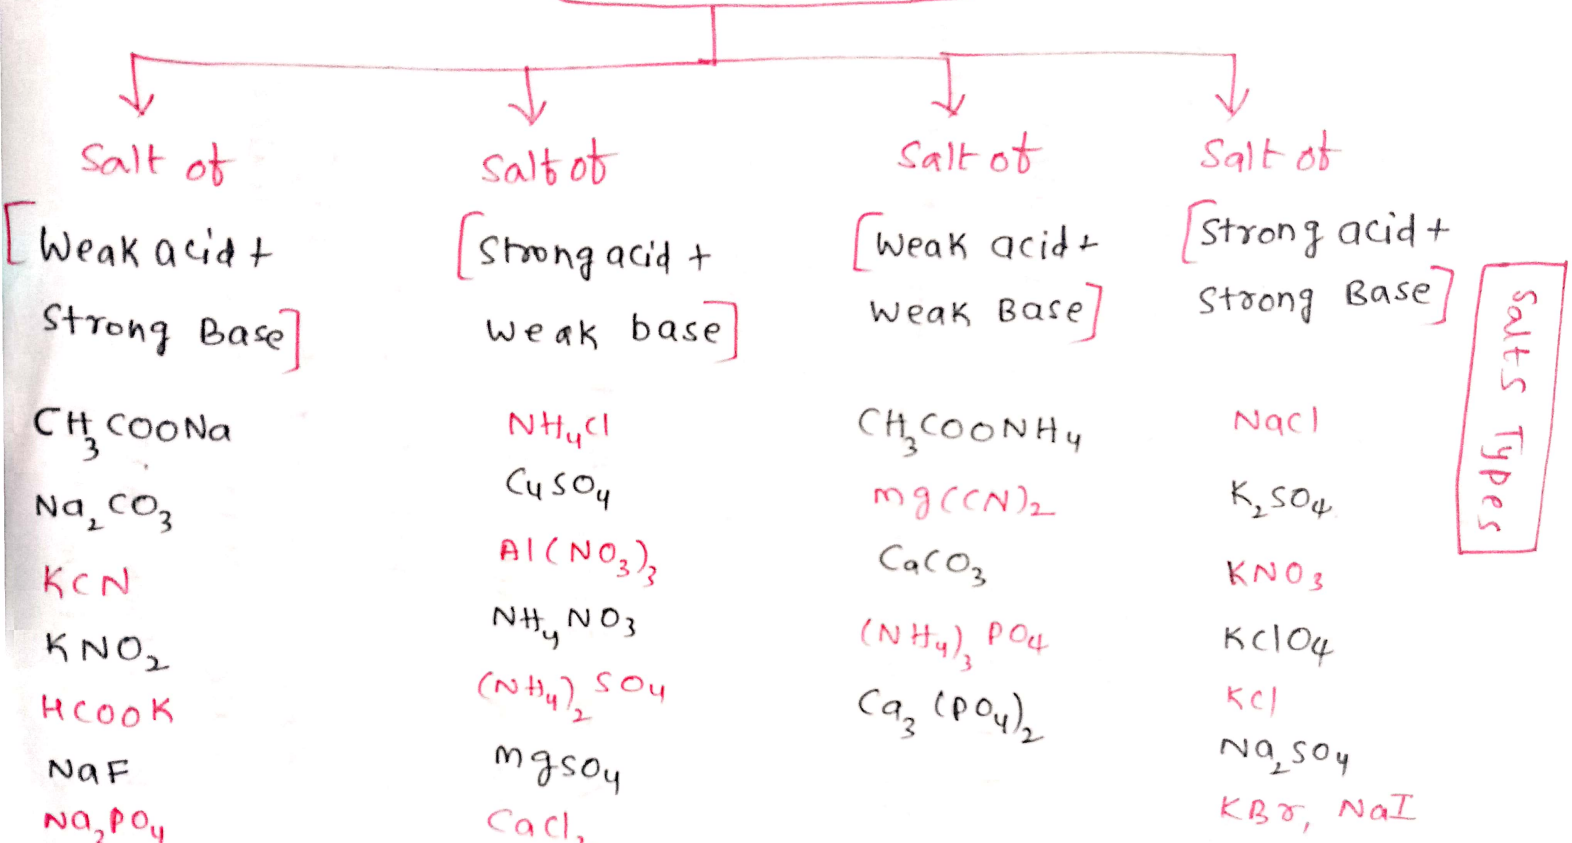 Salt of
[Weak acid +
Strong Base]
CH₃COONa
Na₂CO₃
KCN
KNO₂
HCOOK
NaF
Na₂PO₄
Salt of
[Strong acid +
weak base]
NH₄Cl
CuSO₄
Al(NO₃)₃
NH₄NO₃
(NH₄)₂SO₄
MgSO₄
CaCl₂
Salt of
[Weak acid +
Weak Base]
CH₃COONH₄
Mg(CN)₂
CaCO₃
(NH₄)₃PO₄
Ca₃(PO₄)₂
Salt of
[Strong acid +
Strong Base]
NaCl
K₂SO₄
KNO₃
KClO₄
KCl
Na₂SO₄
KBr, NaI
Salts Types